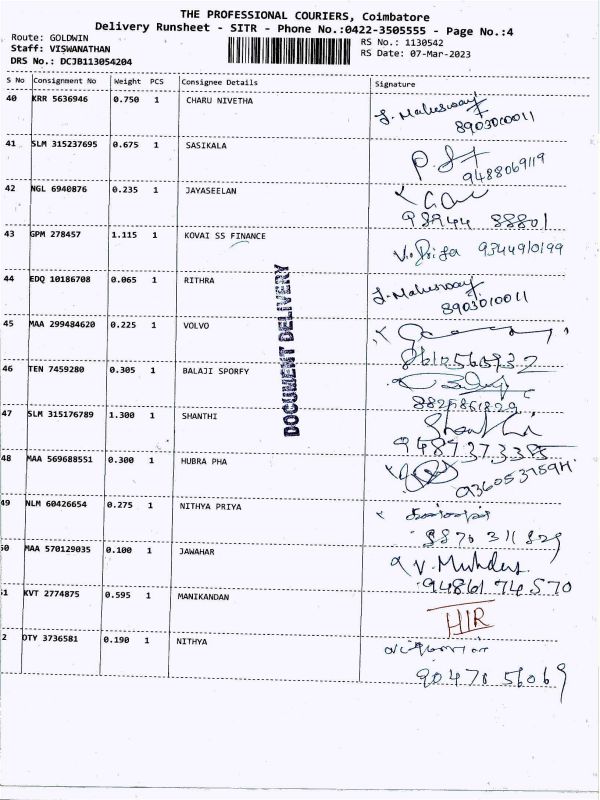 THE PROFESSIONAL COURIERS, Coimbatore
Delivery Runsheet - SITR - Phone No.:0422-3505555 - Page No.:4
Route: GOLDWIN
RS No.: 1130542
Staff: VISWANATHAN
RS Date: 07-Mar-2023
DRS No.: DCJB113054204
S No Consignment No Weight PCS Consignee Details Signature
40 KRR 5636946 0.750 1 CHARU NIVETHA
8903010011
41 SLM 315237695 0.675 1 SASIKALA
9488069119
42 NGL 6940876 0.235 1 JAYASEELAN
98944 88801
43 GPM 278457 1.115 1 KOVAI SS FINANCE 9344910199
44 EDQ 10186708 0.065 1 RITHRA
8903010011
45 MAA 299484620 0.225 1 VOLVO
46 TEN 7459280 0.305 1 BALAJI SPORFY
47 SLM 315176789 1.300 1 SHANTHI
9487373385
48 MAA 569688551 0.300 1 HUBRA PHA
49 NLM 60426654 0.275 1 NITHYA PRIYA
8870 311 829
50 MAA 570129035 0.100 1 JAWAHAR
94861 74570
1 KVT 2774875 0.595 1 MANIKANDAN
HIR
2 OTY 3736581 0.190 1 NITHYA
90478 56069
DOCUMENT DELIVERY